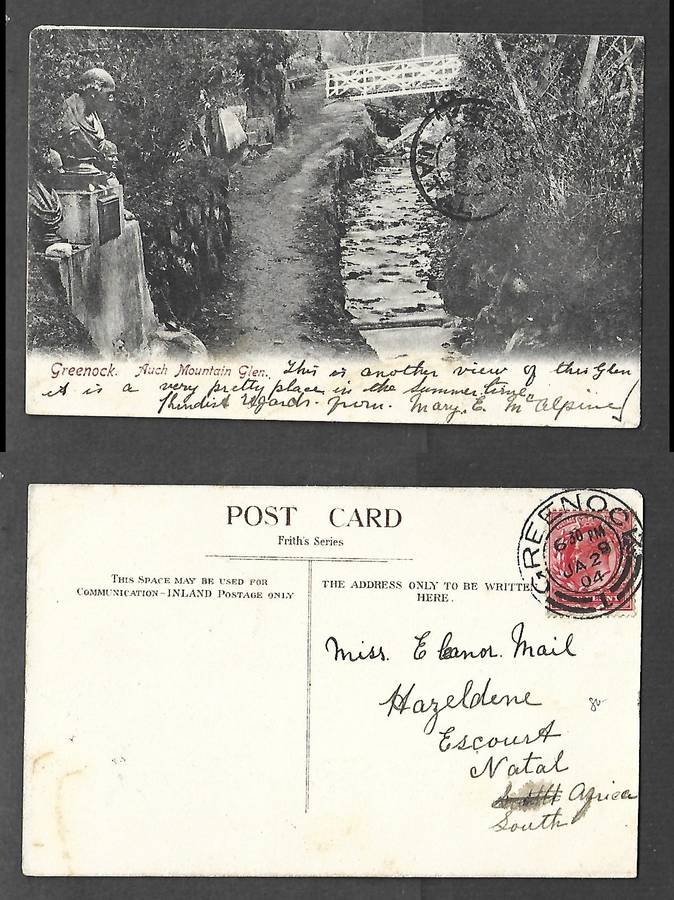 Greenock. Auch Mountain Glen. This is another view of this Glen
it is a very pretty place in the summer time.
Kindist regards from Mary. E. McAlpine
POST CARD
Frith's Series
THIS SPACE MAY BE USED FOR
COMMUNICATION-INLAND POSTAGE ONLY
THE ADDRESS ONLY TO BE WRITTEN
HERE.
GREENOCK
6 30 PM
JA 29
04
1
Miss. Eleanor. Mail
Hazeldene
Escourt
Natal
South Africa
South